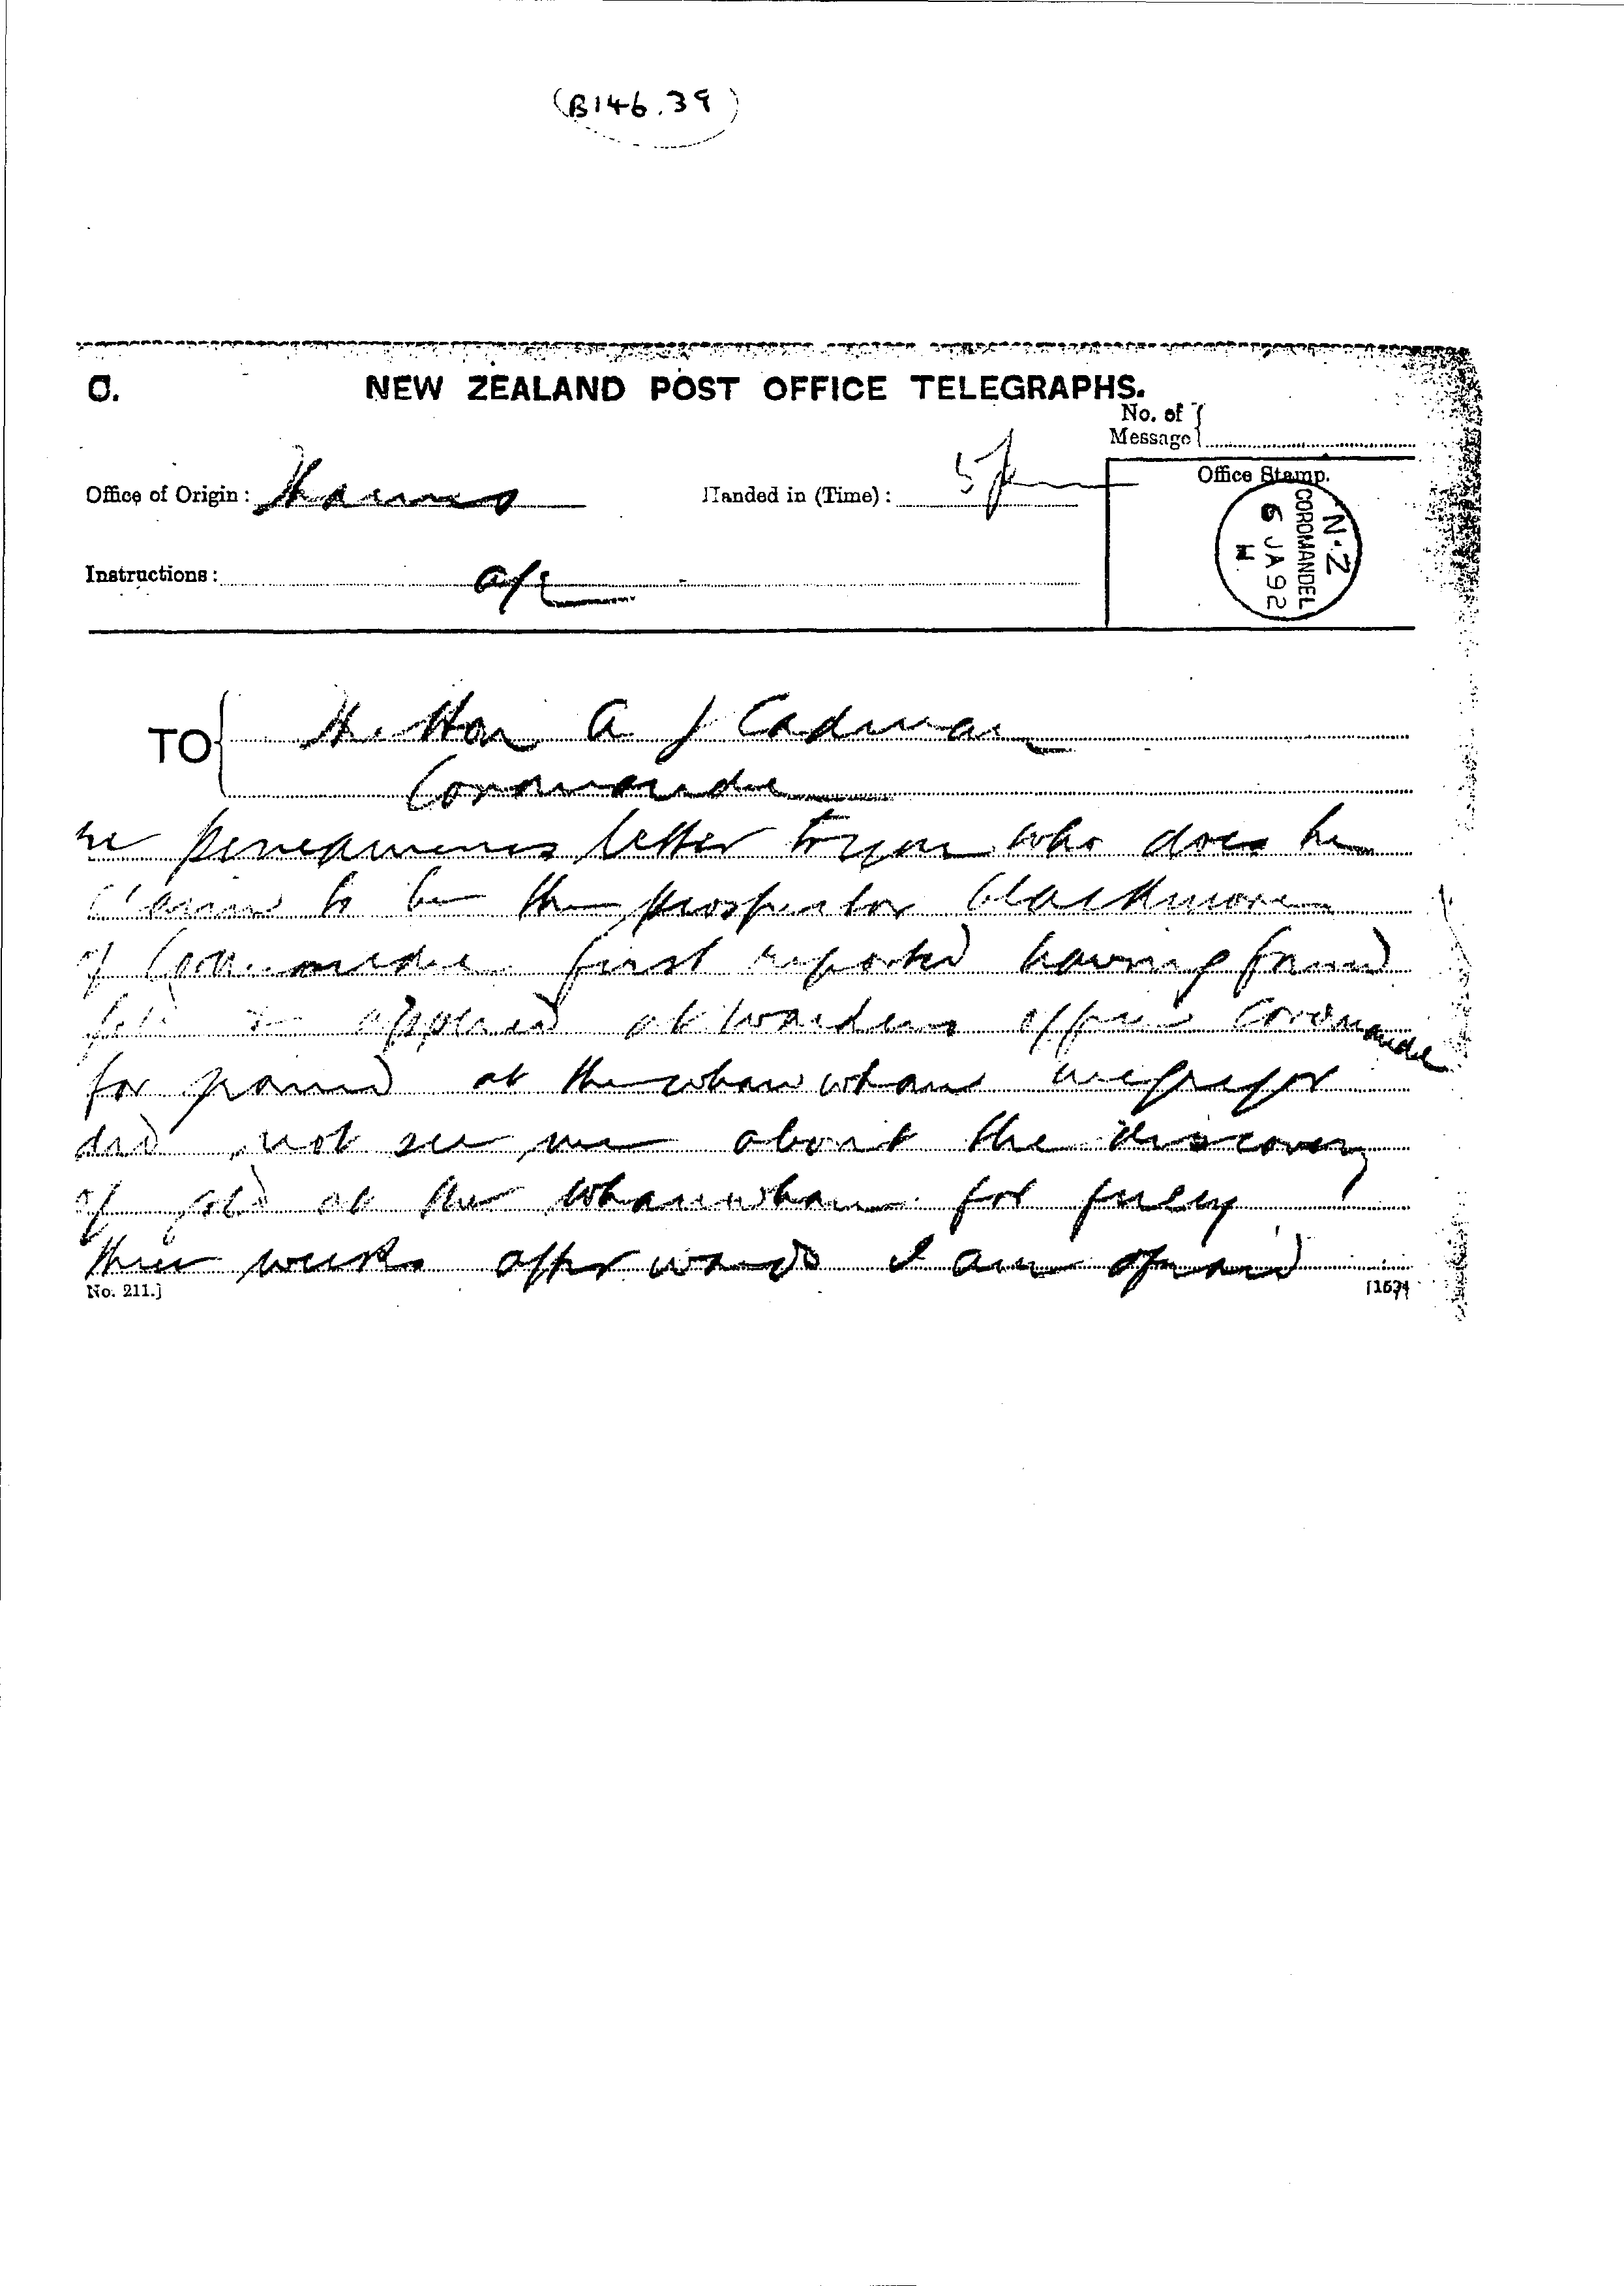 (B146.39)
C.
NEW ZEALAND POST OFFICE TELEGRAPHS.
No. of
Message
Office of Origin: Thames
Handed in (Time): 5 pm
Office Stamp.
N.Z
COROMANDEL
6 JA 92
Instructions:
TO
The Hon A J Cadman
Coromandel
re letter to you who does he
claim to be the prospector Blackmore
of Coromandel first reported having found
gold & applied at wardens office Coromandel
for ground at the whau whau mcgregor
did not see me about the discovery
of gold at the whau whau for fully
three weeks afterwards I am afraid
No. 211.]